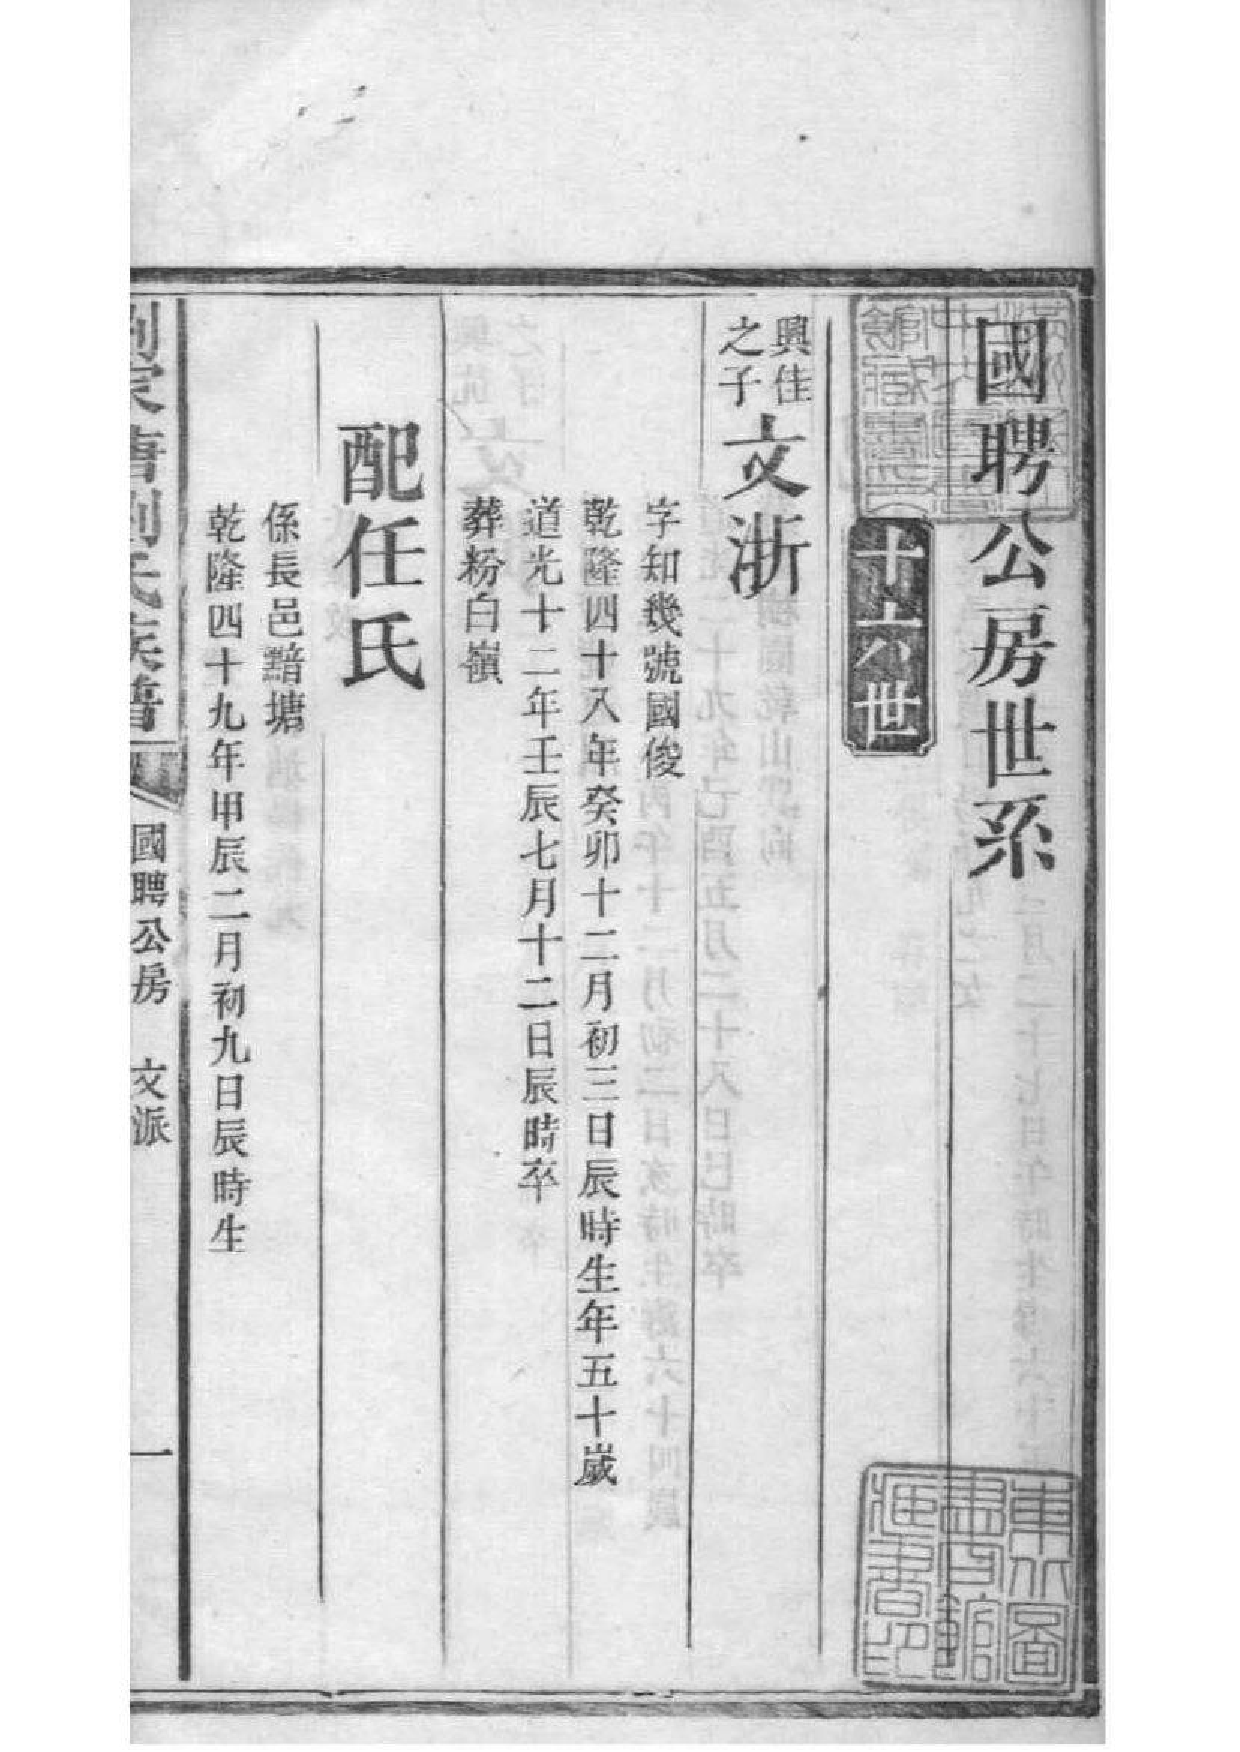 國聘公房世系
十六世
興佳之子
文浙
字知幾號國俊
乾隆四十八年癸卯十二月初三日辰時生年五十歲
道光十二年壬辰七月十二日辰時卒
葬粉白嶺
配任氏
係長邑黯塘
乾隆四十九年甲辰二月初九日辰時生
劉氏族譜
國聘公房 文派
一